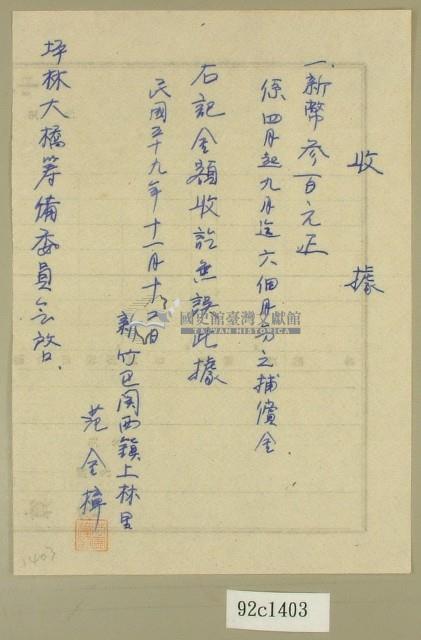 收據
一.新幣參百元正
係四月起九月迄六個月分之補償金
右記金額收訖無誤此據
民國五十九年十一月十六日
新竹县関西鎮上林里
范金樟
坪林大橋筹備委員会啓.
國史館臺灣文獻館
TAIWAN HISTORICA
1403
92c1403